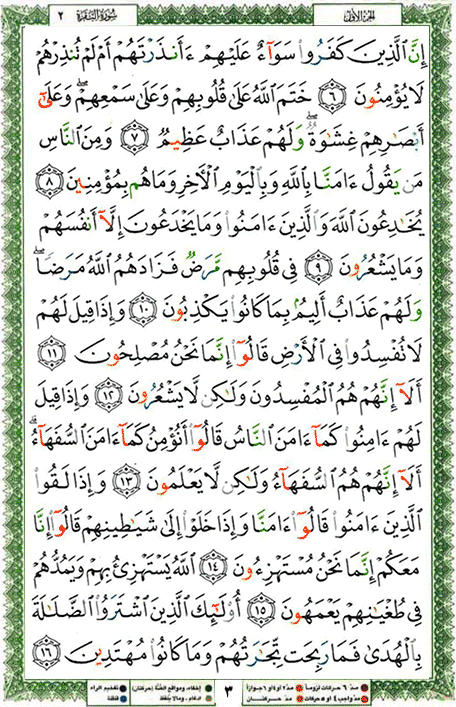 الجزء الأول
سورة البقرة ٢
إِنَّ ٱلَّذِينَ كَفَرُوا۟ سَوَآءٌ عَلَيْهِمْ ءَأَنذَرْتَهُمْ أَمْ لَمْ تُنذِرْهُمْ
لَا يُؤْمِنُونَ ٦ خَتَمَ ٱللَّهُ عَلَىٰ قُلُوبِهِمْ وَعَلَىٰ سَمْعِهِمْ ۖ وَعَلَىٰٓ
أَبْصَـٰرِهِمْ غِشَـٰوَةٌ ۖ وَلَهُمْ عَذَابٌ عَظِيمٌ ٧ وَمِنَ ٱلنَّاسِ
مَن يَقُولُ ءَامَنَّا بِٱللَّهِ وَبِٱلْيَوْمِ ٱلْـَٔاخِرِ وَمَا هُم بِمُؤْمِنِينَ ٨
يُخَـٰدِعُونَ ٱللَّهَ وَٱلَّذِينَ ءَامَنُوا۟ وَمَا يَخْدَعُونَ إِلَّآ أَنفُسَهُمْ
وَمَا يَشْعُرُونَ ٩ فِى قُلُوبِهِم مَّرَضٌ فَزَادَهُمُ ٱللَّهُ مَرَضًا ۖ
وَلَهُمْ عَذَابٌ أَلِيمٌۢ بِمَا كَانُوا۟ يَكْذِبُونَ ١٠ وَإِذَا قِيلَ لَهُمْ
لَا تُفْسِدُوا۟ فِى ٱلْأَرْضِ قَالُوٓا۟ إِنَّمَا نَحْنُ مُصْلِحُونَ ١١
أَلَآ إِنَّهُمْ هُمُ ٱلْمُفْسِدُونَ وَلَـٰكِن لَّا يَشْعُرُونَ ١٢ وَإِذَا قِيلَ
لَهُمْ ءَامِنُوا۟ كَمَآ ءَامَنَ ٱلنَّاسُ قَالُوٓا۟ أَنُؤْمِنُ كَمَآ ءَامَنَ ٱلسُّفَهَآءُ ۗ
أَلَآ إِنَّهُمْ هُمُ ٱلسُّفَهَآءُ وَلَـٰكِن لَّا يَعْلَمُونَ ١٣ وَإِذَا لَقُوا۟
ٱلَّذِينَ ءَامَنُوا۟ قَالُوٓا۟ ءَامَنَّا وَإِذَا خَلَوْا۟ إِلَىٰ شَيَـٰطِينِهِمْ قَالُوٓا۟ إِنَّا
مَعَكُمْ إِنَّمَا نَحْنُ مُسْتَهْزِءُونَ ١٤ ٱللَّهُ يَسْتَهْزِئُ بِهِمْ وَيَمُدُّهُمْ
فِى طُغْيَـٰنِهِمْ يَعْمَهُونَ ١٥ أُو۟لَـٰٓئِكَ ٱلَّذِينَ ٱشْتَرَوُا۟ ٱلضَّلَـٰلَةَ
بِٱلْهُدَىٰ فَمَا رَبِحَت تِّجَـٰرَتُهُمْ وَمَا كَانُوا۟ مُهْتَدِينَ ١٦
مدّ ٦ حركات لزوماً مدّ ٢ أو ٤ أو ٦ جوازاً
مدّ واجب ٤ أو ٥ حركات مدّ حركتان
٣
إخفاء، ومواقع الغنّة (حركتان) تفخيم الراء
إدغام، وما لا يُلفظ قلقلة